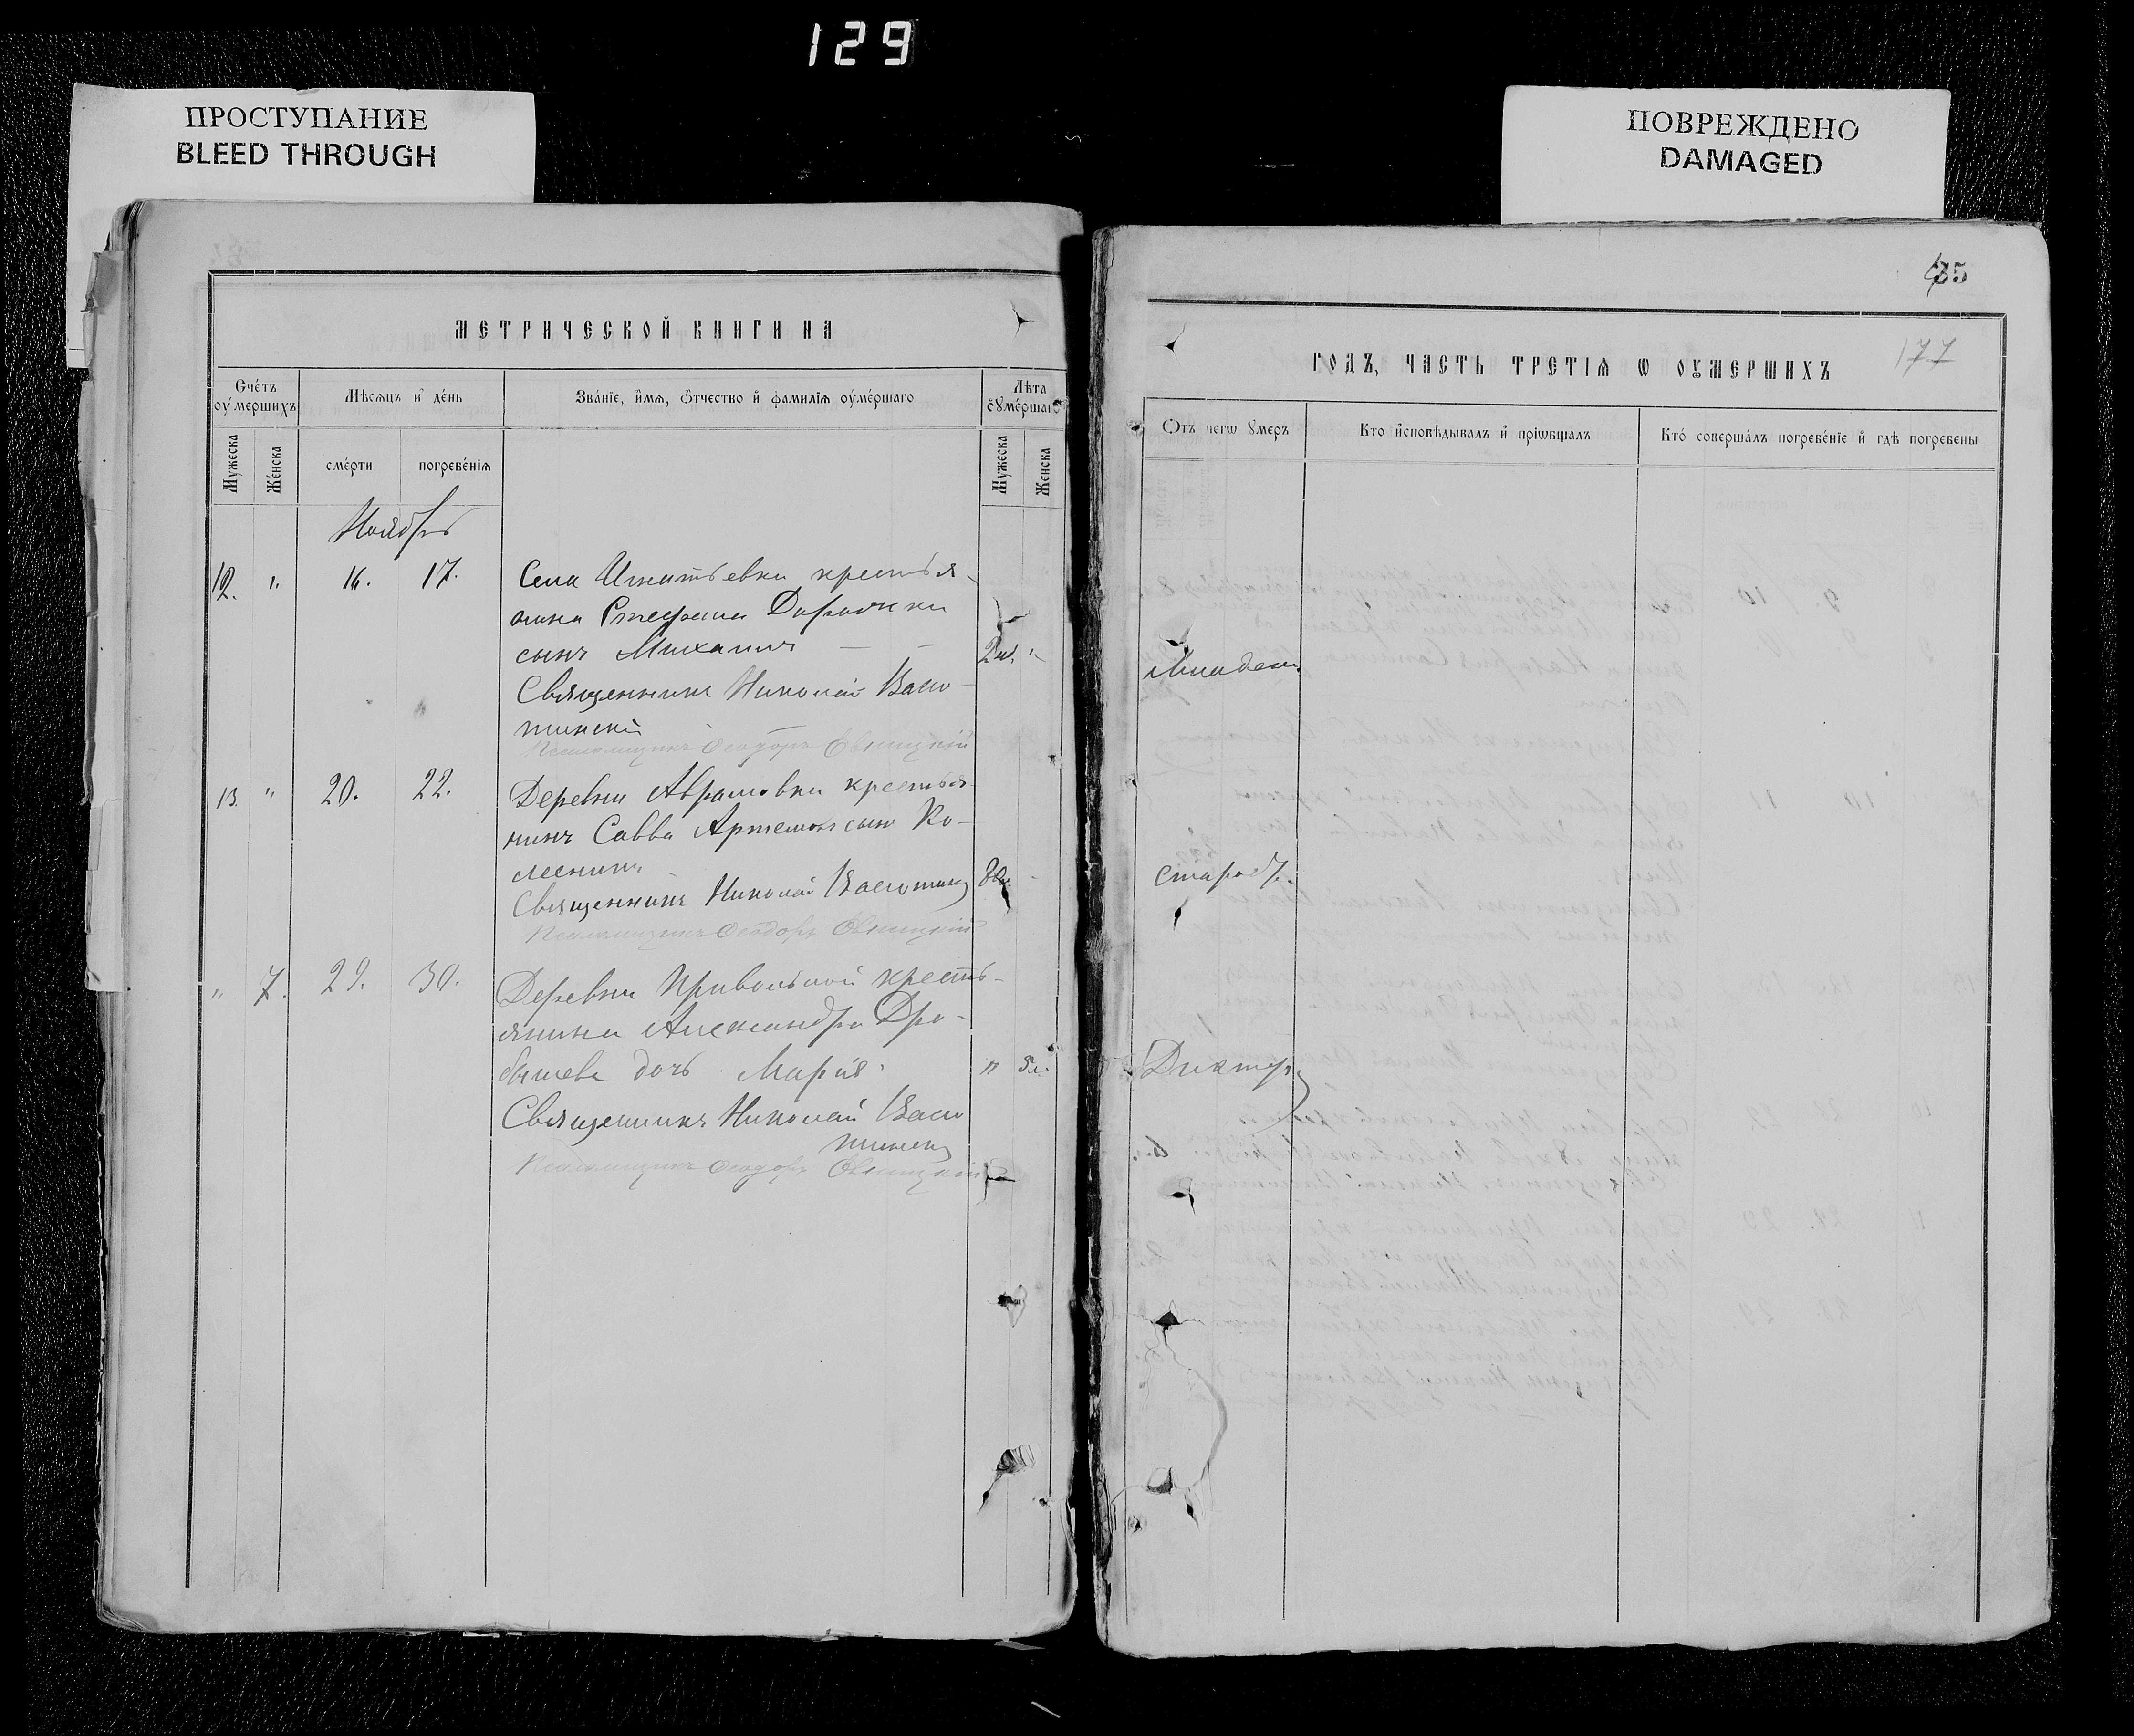 129
ПРОСТУПАНИЕ
BLEED THROUGH
ПОВРЕЖДЕНО
DAMAGED
МЕТРИЧЕСКОЙ КНИГИ НА
Счéтъ оумершихъ
Мѣсяцъ и дéнь
Звáніе, и́мя, ѻ́тчество и҆ фамилія оумéршаго
Лѣта оумéршагѡ
Мужеска
Жéнска
смéрти
погребéнія
Мужеска
Женска
Ноябрь
12. " 16. 17. Села Игнатьевки крестья-
нина Стефана
сынъ Михаилъ — — 2 м. "
Священникъ Николай Васю-
тинскій
Псаломщикъ Ѳеодоръ
13 " 20. 22. Деревни Аврамовки крестья-
нинъ Савва Артемовъ сынъ Ко-
лесникъ
Священникъ Николай Васютинск
Псаломщикъ Ѳеодоръ
" 7. 29. 30. Деревни Привольной кресть-
янина Александра Дро-
бышева дочь Марія " 5 л.
Священникъ Николай Васю
тинск
Псаломщикъ Ѳеодоръ
35
177
ГОДЪ, ЧАСТЬ ТРЕТІЯ Ѡ ОУМЕРШИХЪ
Ѿтъ чегѡ умеръ
Кто и҆сповѣдывалъ и҆ пріѡбщалъ
Ктó совершáлъ погребéніе и҆ гдѣ погребены
Младен.
Старост.
Дифтер.